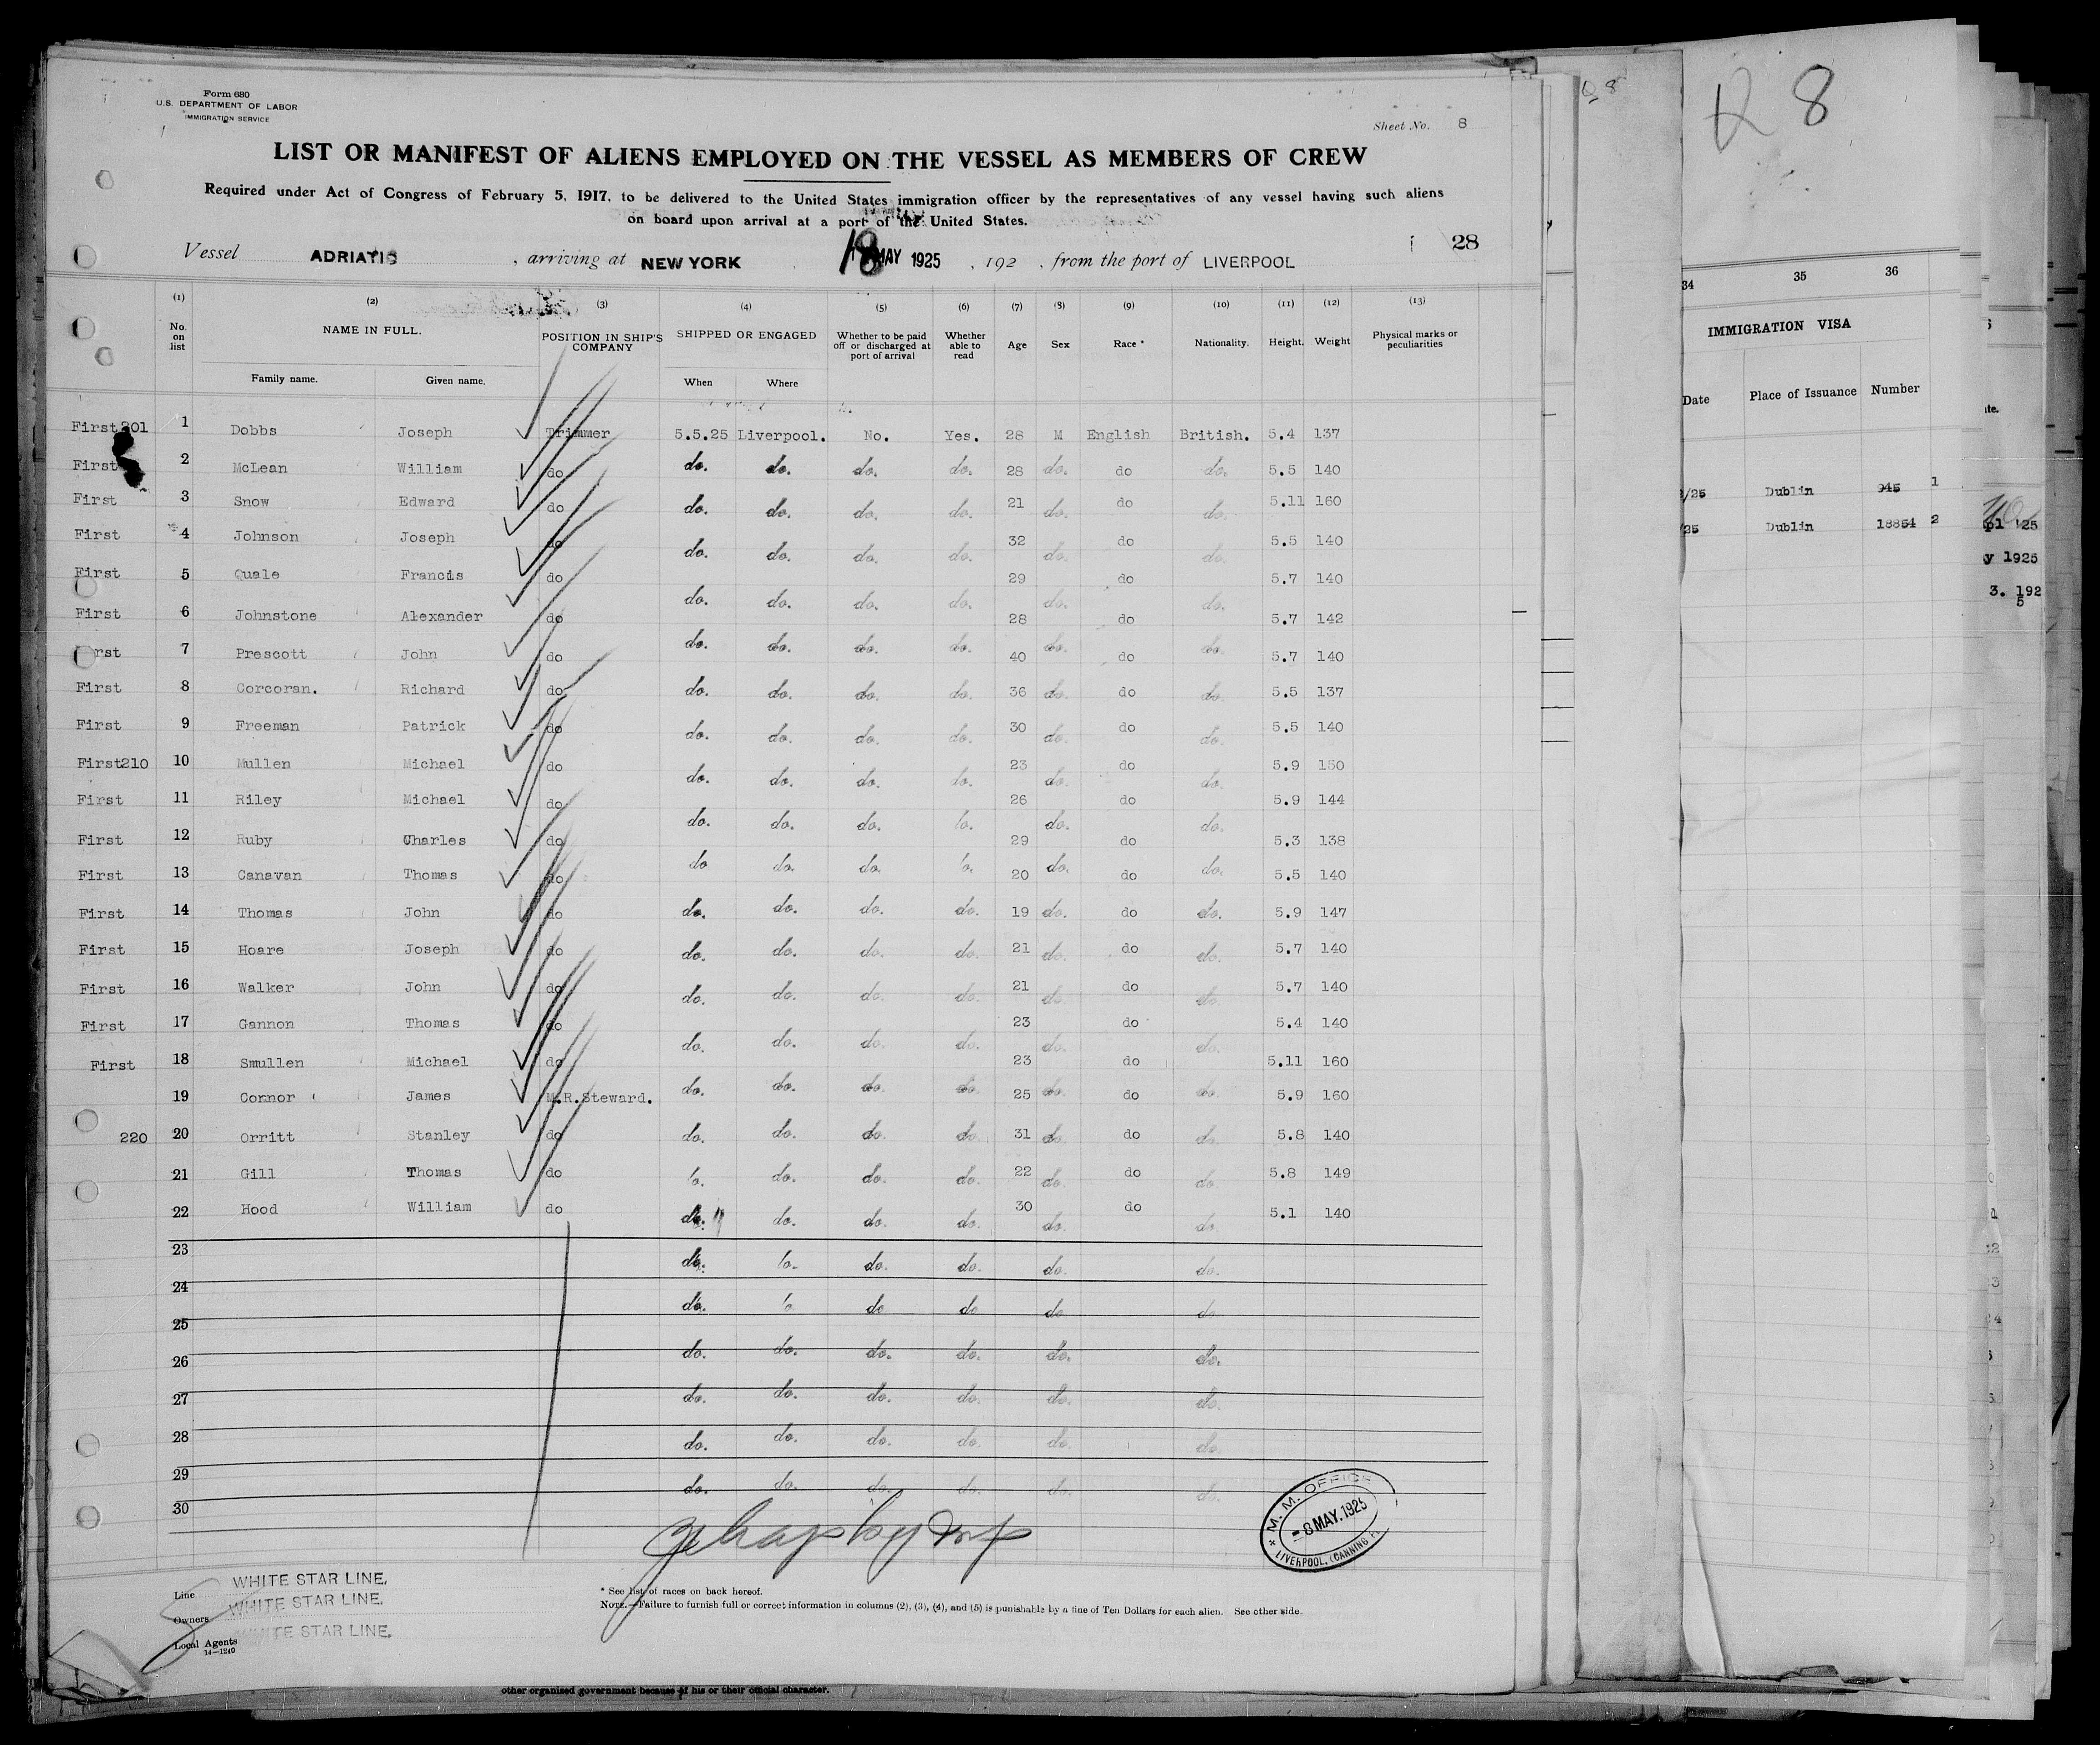 Form 680
U.S. DEPARTMENT OF LABOR
IMMIGRATION SERVICE
Sheet No. 8
LIST OR MANIFEST OF ALIENS EMPLOYED ON THE VESSEL AS MEMBERS OF CREW
Required under Act of Congress of February 5, 1917, to be delivered to the United States immigration officer by the representatives of any vessel having such aliens
on board upon arrival at a port of the United States.
28
Vessel ADRIATIC, arriving at NEW YORK 18 MAY 1925, 192 , from the port of LIVERPOOL
(1) (2) (3) (4) (5) (6) (7) (8) (9) (10) (11) (12) (13)
No. on list NAME IN FULL. POSITION IN SHIP'S COMPANY SHIPPED OR ENGAGED Whether to be paid off or discharged at port of arrival Whether able to read Age Sex Race * Nationality. Height. Weight Physical marks or peculiarities
Family name. Given name. When Where
First 201 1 Dobbs Joseph Trimmer 5.5.25 Liverpool. No. Yes. 28 M English British. 5.4 137
First 2 McLean William do do. do. do. do. 28 do. do do. 5.5 140
First 3 Snow Edward do do. do. do. do. 21 do. do do. 5.11 160
First 4 Johnson Joseph do do. do. do. do. 32 do. do do. 5.5 140
First 5 Quale Francis do do. do. do. do. 29 do. do do. 5.7 140
First 6 Johnstone Alexander do do. do. do. do. 28 do. do do. 5.7 142
First 7 Prescott John do do. do. do. do. 40 do. do do. 5.7 140
First 8 Corcoran. Richard do do. do. do. do. 36 do. do do. 5.5 137
First 9 Freeman Patrick do do. do. do. do. 30 do. do do. 5.5 140
First 210 10 Mullen Michael do do. do. do. do. 23 do. do do. 5.9 150
First 11 Riley Michael do do. do. do. do. 26 do. do do. 5.9 144
First 12 Ruby Charles do do do. do. do. 29 do. do do. 5.3 138
First 13 Canavan Thomas do. do. do. do. do. 20 do. do do. 5.5 140
First 14 Thomas John do do. do. do. do. 19 do. do do. 5.9 147
First 15 Hoare Joseph do do. do. do. do. 21 do. do do. 5.7 140
First 16 Walker John do do. do. do. do. 21 do. do do. 5.7 140
First 17 Gannon Thomas do do. do. do. do. 23 do. do do. 5.4 140
First 18 Smullen Michael do do. do. do. do. 23 do. do do. 5.11 160
19 Connor James M.R.Steward. do. do. do. do. 25 do. do do. 5.9 160
220 20 Orritt Stanley do do. do. do. do. 31 do. do do. 5.8 140
21 Gill Thomas do do. do. do. do. 22 do. do do. 5.8 149
22 Hood William do do. do. do. do. 30 do. do do. 5.1 140
23 do. do. do. do. do. do.
24 do. do do do do do
25 do. do. do. do. do. do.
26 do. do. do. do. do. do.
27 do. do. do. do. do. do.
28 do. do. do. do. do. do.
29
30
M. M. OFFICE
8 MAY. 1925
LIVERPOOL, (CANNING
Line WHITE STAR LINE.
Owners WHITE STAR LINE.
Local Agents WHITE STAR LINE.
14—1240
* See list of races on back hereof.
NOTE.—Failure to furnish full or correct information in columns (2), (3), (4), and (5) is punishable by a fine of Ten Dollars for each alien. See other side.
other organized government because of his or their official character.
Q 8
R 8
34 35 36
IMMIGRATION VISA
Date Place of Issuance Number
/25 Dublin 945 1
/25 Dublin 18854 2
'25
y 1925
3. 192
5